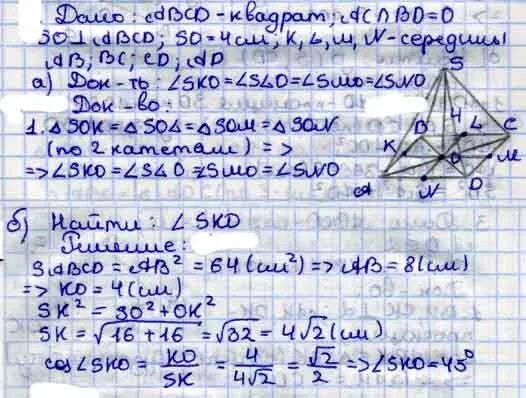 Дано: ABCD - квадрат; AC∩BD=O
SO⊥ABCD; SO=4см, K, L, M, N-середины
AB; BC; CD; AD
а) Док-ть: ∠SKO=∠SLO=∠SMO=∠SNO
Док-во:
1. △SOK=△SOL=△SOM=△SON
(по 2 катетам) =>
=> ∠SKO=∠SLO=∠SMO=∠SNO
S
4
B
L
C
K
O
M
A
N
D
б) Найти: ∠SKO
Решение:
SABCD = AB² = 64(см²) => AB = 8(см)
=> KO = 4(см)
SK² = SO² + OK²
SK = √16 + 16 = √32 = 4√2 (см)
cos∠SKO = KO/SK = 4/4√2 = √2/2 => ∠SKO=45°